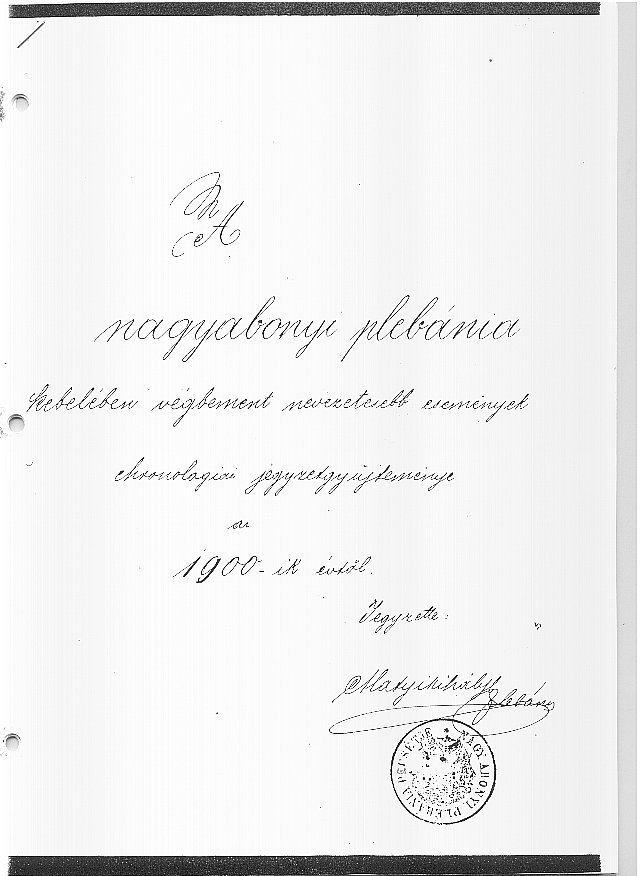 A
nagyabonyi plebánia
kebelében végbement nevezetesebb események
chronologiai jegyzetgyűjteménye
az
1900-ik évtől.
Jegyzette:
plebános
NAGY ABONYI PLEBÁNIA PECSÉTJE